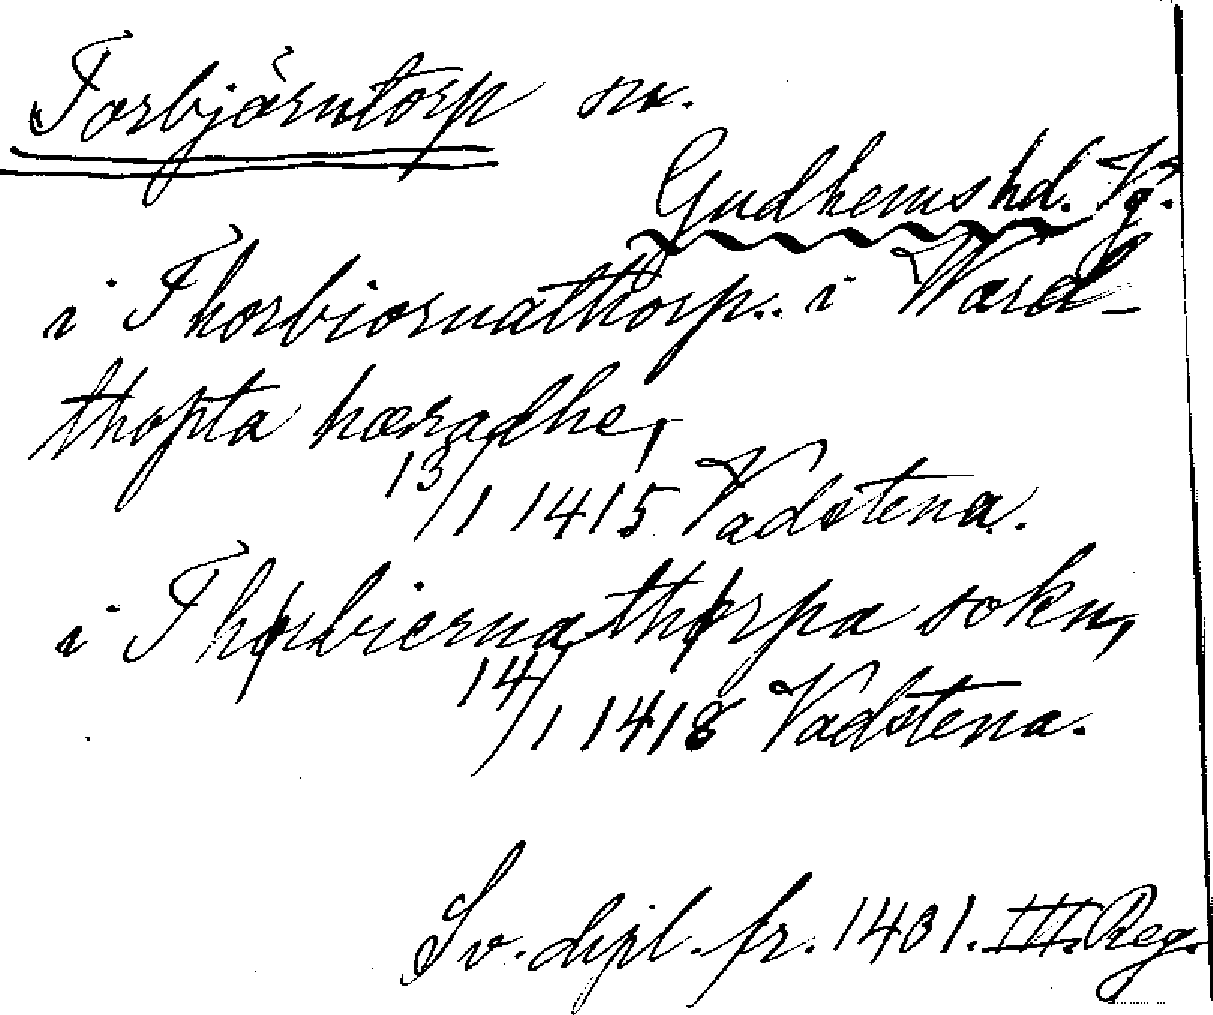 Torbjörntorp sn.
Gudhems hd. Vg.
i Thorbiornathorp.. i Ward-
thopta hæradhe,
13/1 1415 Vadstena.
i Thørbiernathørpa sokn,
14/1 1418 Vadstena.
Sv. dipl. fr. 1401. III. Reg.